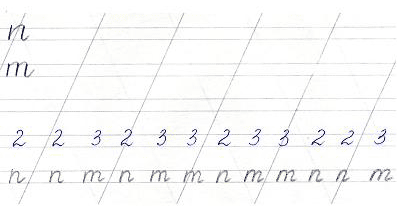 п
т
2 2 3 2 3 3 2 3 3 2 2 3
п п т п т т п т т п п т